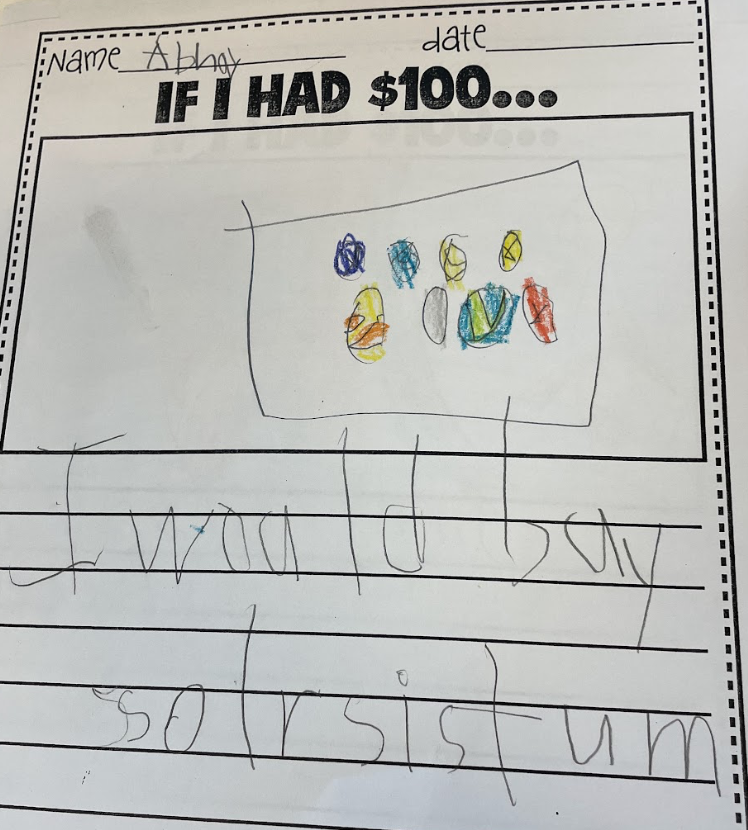 Name Abhay date
IF I HAD $100...
I would bay
solrsistum